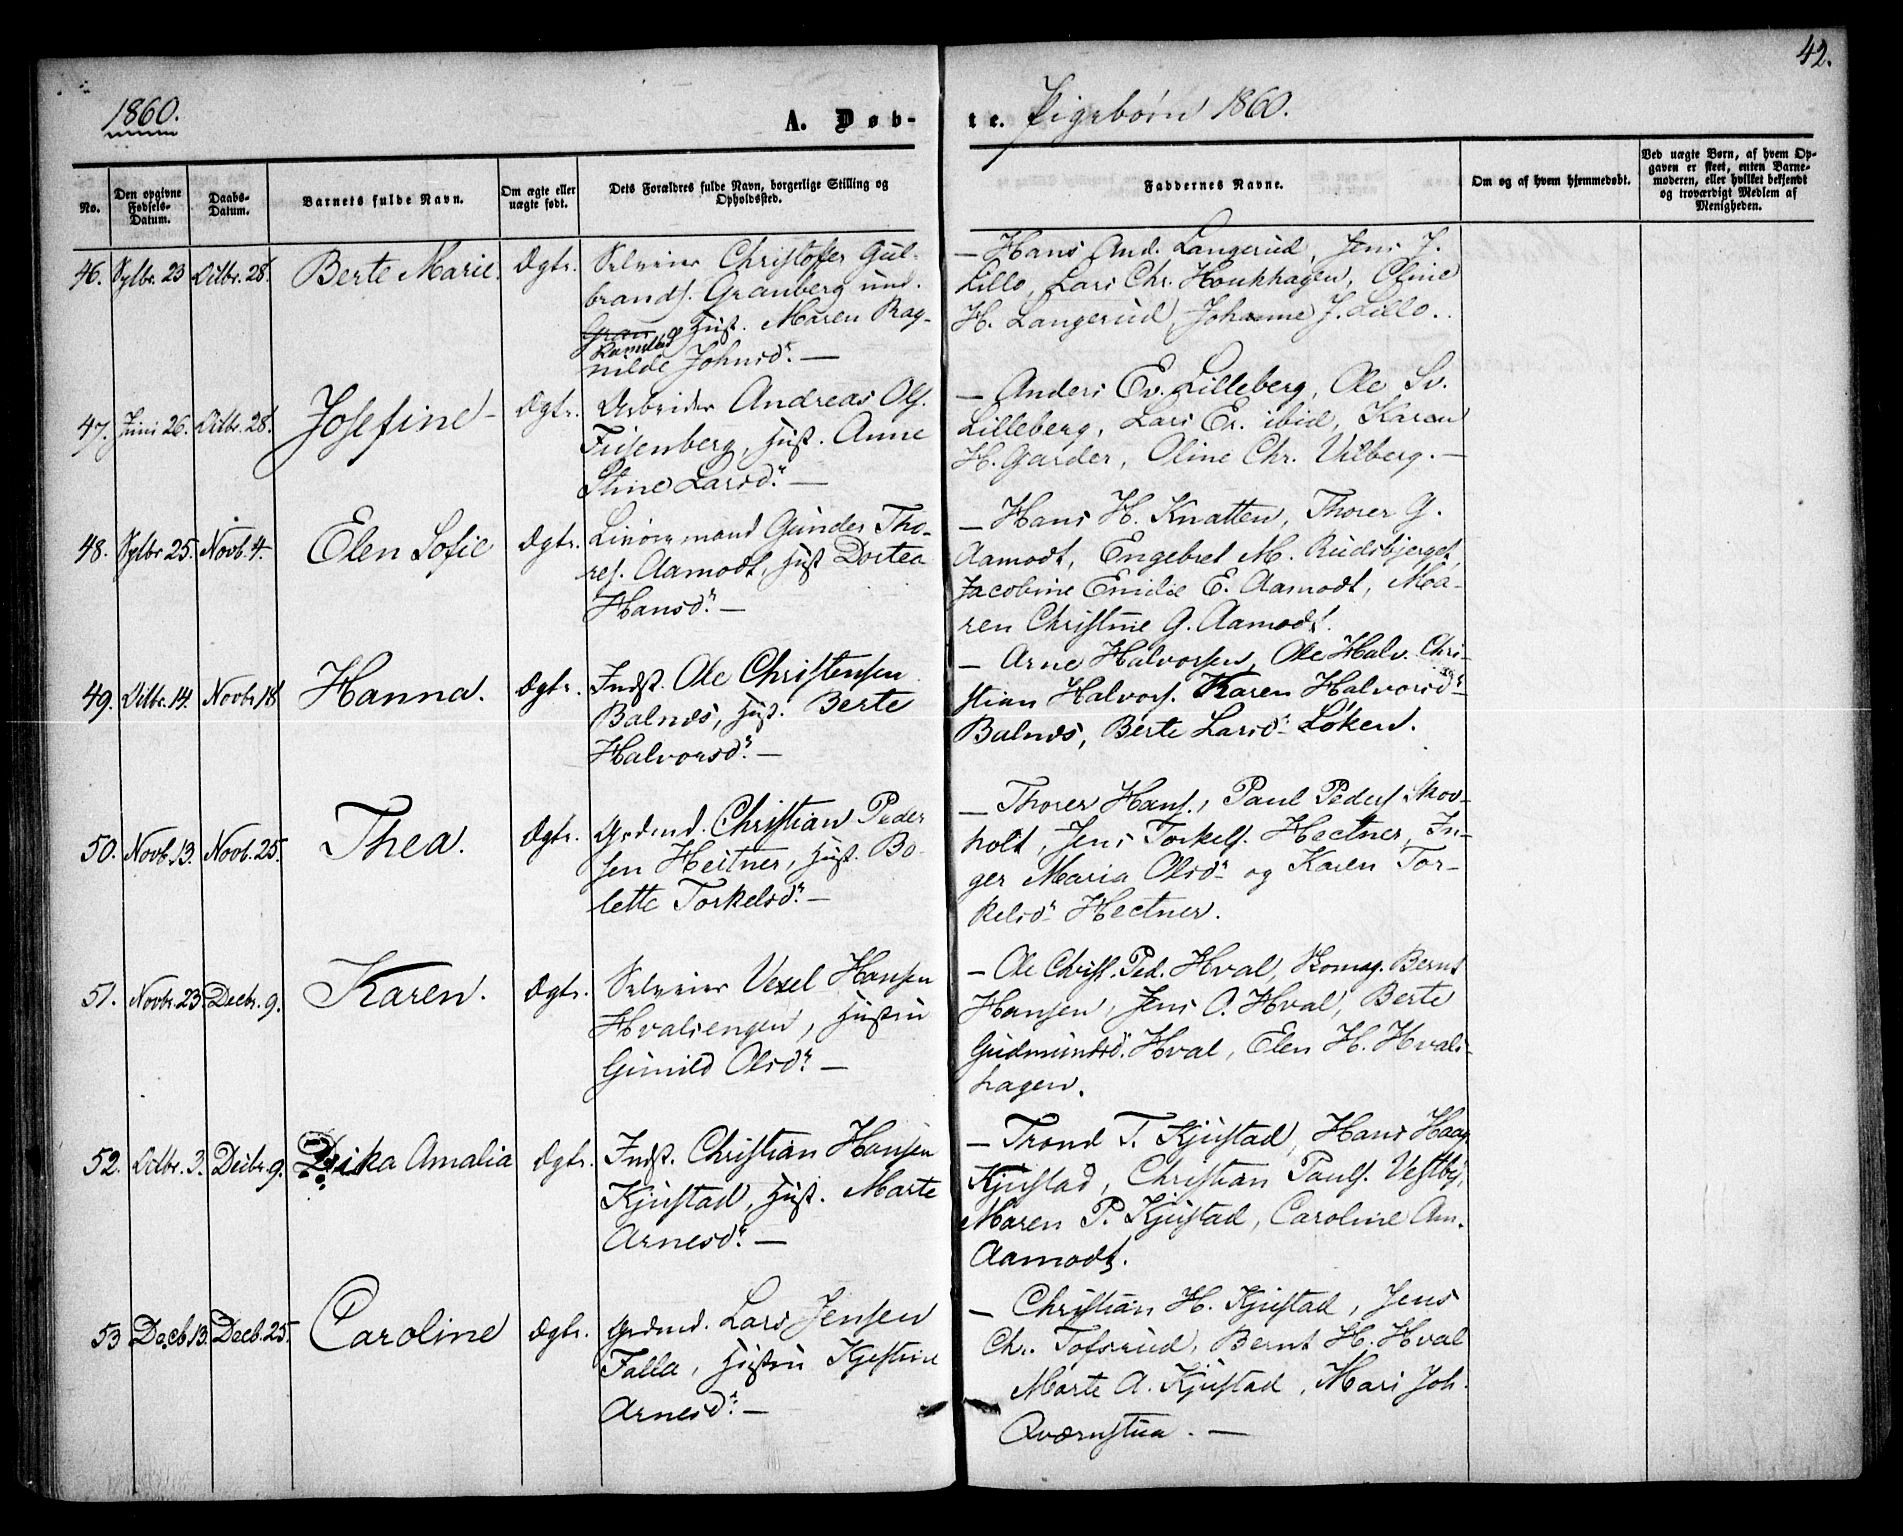 42.
1860.
A. Døb-
te. Pigebørn 1860.
No.
Den opgivne Fødsels-Datum.
Daabs-Datum.
Barnets fulde Navn.
Om ægte eller uægte født.
Dets Forældres fulde Navn, borgerlige Stilling og Opholdssted.
Faddernes Navne.
Om og af hvem hjemmedøbt.
Ved uægte Børn, af hvem Opgaven er skeet, enten Barnemoderen, eller hvilket bekjendt og troværdigt Medlem af Menigheden.
46. 23 28. Berte Marie. Ægte. Selveier Christoffer Gul-
brands. Granberg und.
Hust. Maren Rag-
nilde Johnsdr. —
— Hans And. Langerud, Jens J.
Lillo, Lars Chr. Houkhagen, Oline
H. Langerud, Johanne J. Lillo.
47. Juni 26. 28. Josefine — Ægte. Arbeider Andreas Ols.
Frisenberg, Hust. Anne
Stine Larsdr. —
— Anders Ev. Lilleberg, Ole Sv.
Lilleberg, Lars Er. ibid, Karen
H. Garder, Oline Chr. Vilberg. —
48. 25. Novb. 4. Elen Sofie Ægte. Gunder Tho-
res. Aamodt, Hust Dortea
Hansdr. —
— Hans H. Knatten, Thorer G.
Aamodt, Engebret M. Rudsbjerget,
Jacobine Emilie E. Aamodt, Ma-
ren Christine G. Aamodt.
49. 14. Novbr. 18 Hanna. Ægte. Indst. Ole Christensen
Balnæs, Hust. Berte
Halvorsdr. —
— Arne Halvorsen, Ole Halv. Chri-
stian Halvors. Karen Halvorsdr
Balnæs, Berte Larsdr Løken.
50. Novb. 13. Novb. 25. Thea. Ægte. Grdmd. Christian Peder
sen Heitner, Hust. Bo-
lette Torkelsdr. —
— Thorer Hans., Paul Peders. Mov-
holt, Jens Torkels. Hectner, In-
ger Maria Olsdr og Karen Tor-
kelsdr Hectner.
51. Novbr. 23. Decbr. 9. Karen. Ægte. Selveier Vexel Hansen
Hvalsengen, Hustru
Gunild Olsdr. —
— Ole Christ. Ped. Hval, Komag. Bernt
Hansen, Jens O. Hval, Berte
Gudmundsd. Hval, Elen H. Hvals-
hagen.
52. 3. Decbr. 9. Drika Amalia Ægte. Indst. Christian Hansen
Kjustad, Hust. Marte
Arnesdr. —
— Trond T. Kjustad, Hans Haag
Kjustad, Christian Pauls. Vestby,
Maren P. Kjustad, Caroline Am.
Aamodt.
53 Decb. 13. Decb. 25. Caroline Ægte. Grdmd. Lars Jensen
Falla, Hustru Kjestine
Arnesdr. —
— Christian H. Kjustad, Jens
Chr. Tofsrud, Bernt H. Hval
Marte A. Kjustad, Mari Joh.
Qværnstua. —